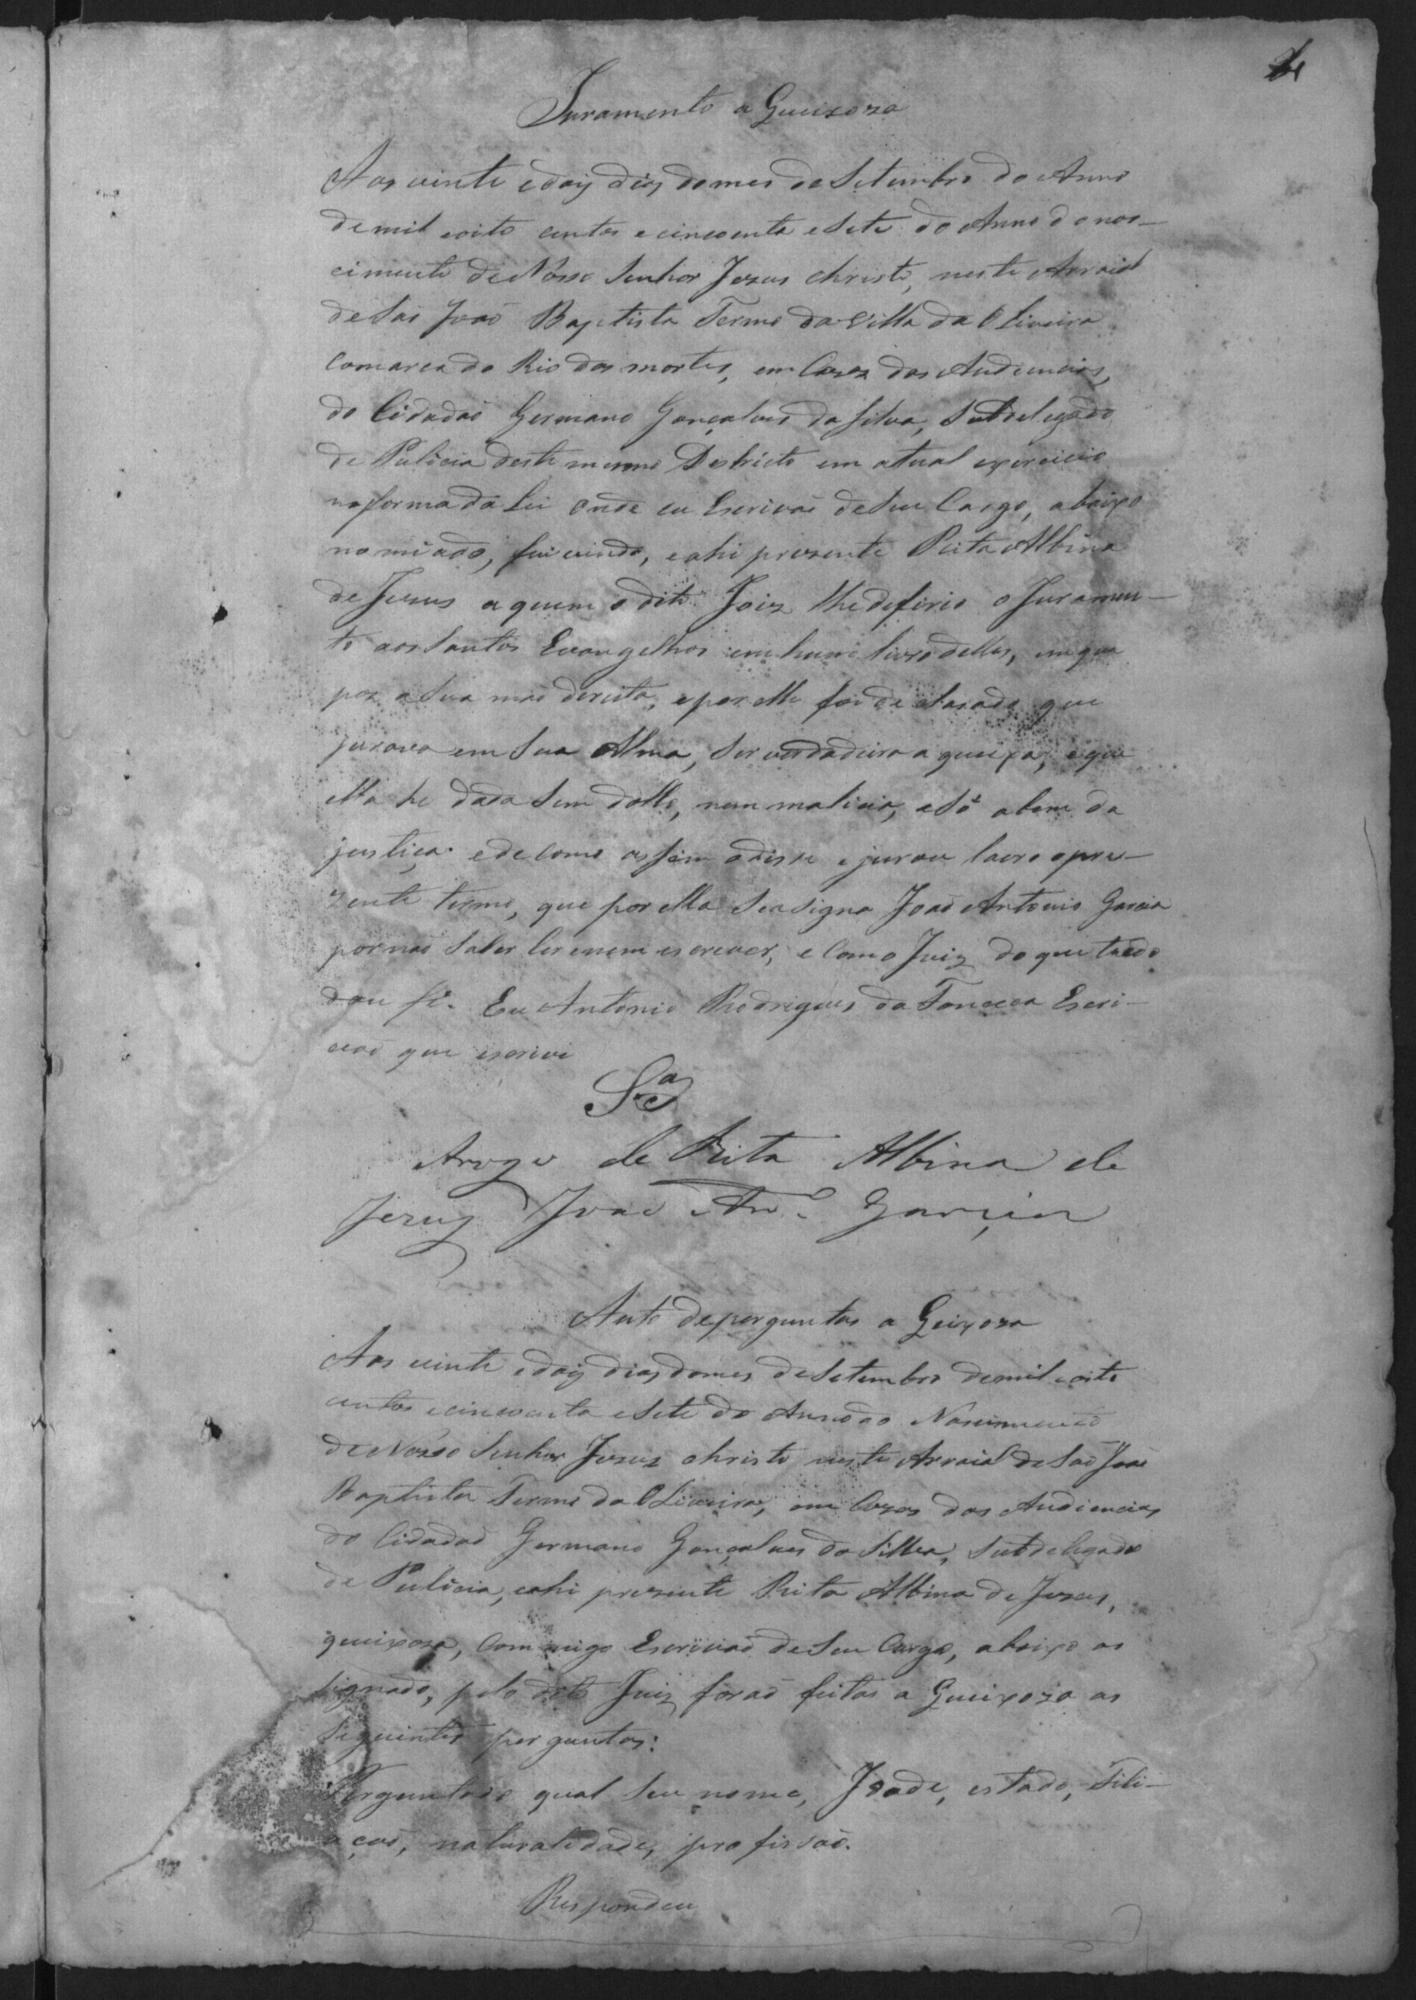 Juramento a Queixoza
Aos vinte e doiz diaz do mes de Setembro do Anno
de mil e oito centos e cincoenta e Sete do Anno do nas-
cimento de Nosso Senhor Jezus Christo, neste Arraial
de São João Baptista Termo da Villa da Oliveira
Comarca do Rio das mortes, em Caza das Audiencias,
do Cidadaõ Germano Gonçalves da Silva, Subdelegado
de Pulicia deste mesmo Destricto em atual exercicio
na forma da Lei onde eu Escrivaõ de Seu Cargo, abaixo
nomiado, fui vindo, e ahi prezente Rita Albina
de Jezus a quem o dito Joiz lhe deferio o Juramen-
to aos Santos Evangelhos em hum livro delles, em que
poz a Sua maõ direita, e por ella foi declarado que
jurava em Sua Alma, Ser verdadeira a queixa, e que
ella he dada Sem dollo, nem malicia, e Só a bem da
justiça. e de como assim o disse e jurou lavro o pre-
zente termo, que por ella Se asigna Joaõ Antonio Garcia
por naõ Saber ler e nem escrever, e Com o Juiz do que tudo
dou fé. Eu Antonio Rodrigues da Fonceca Escri-
vaõ que escrevi
Sa
Arogo de Rita Albina de
Jezuz Joaõ Anto Garcia
Auto de perguntas a Qeixoza
Aos vinte e doiz dias do mes de Setembro de mil e oito
centos e cincoenta e Sete do Anno do Nascimento
de Nosso Senhor Jezuz Christo neste Arraial de Saõ Joaõ
Baptista Termo da Oliveira, em Caza das Audiencias
do Cidadaõ Germano Gonçalves da Sillva, Subdelegado
de Pulicia, e ahi prezente Rita Albina de Jezus,
queixoza, Com migo Escrivaõ de Seu Cargo, abaixo as
signado, pelo dito Juiz foraõ feitas a Queixoza as
Seguintes perguntas:
Perguntado qual Seu nome, Idade, estado, Fili-
açaõ, naturalidade, profissaõ.
Respondeu